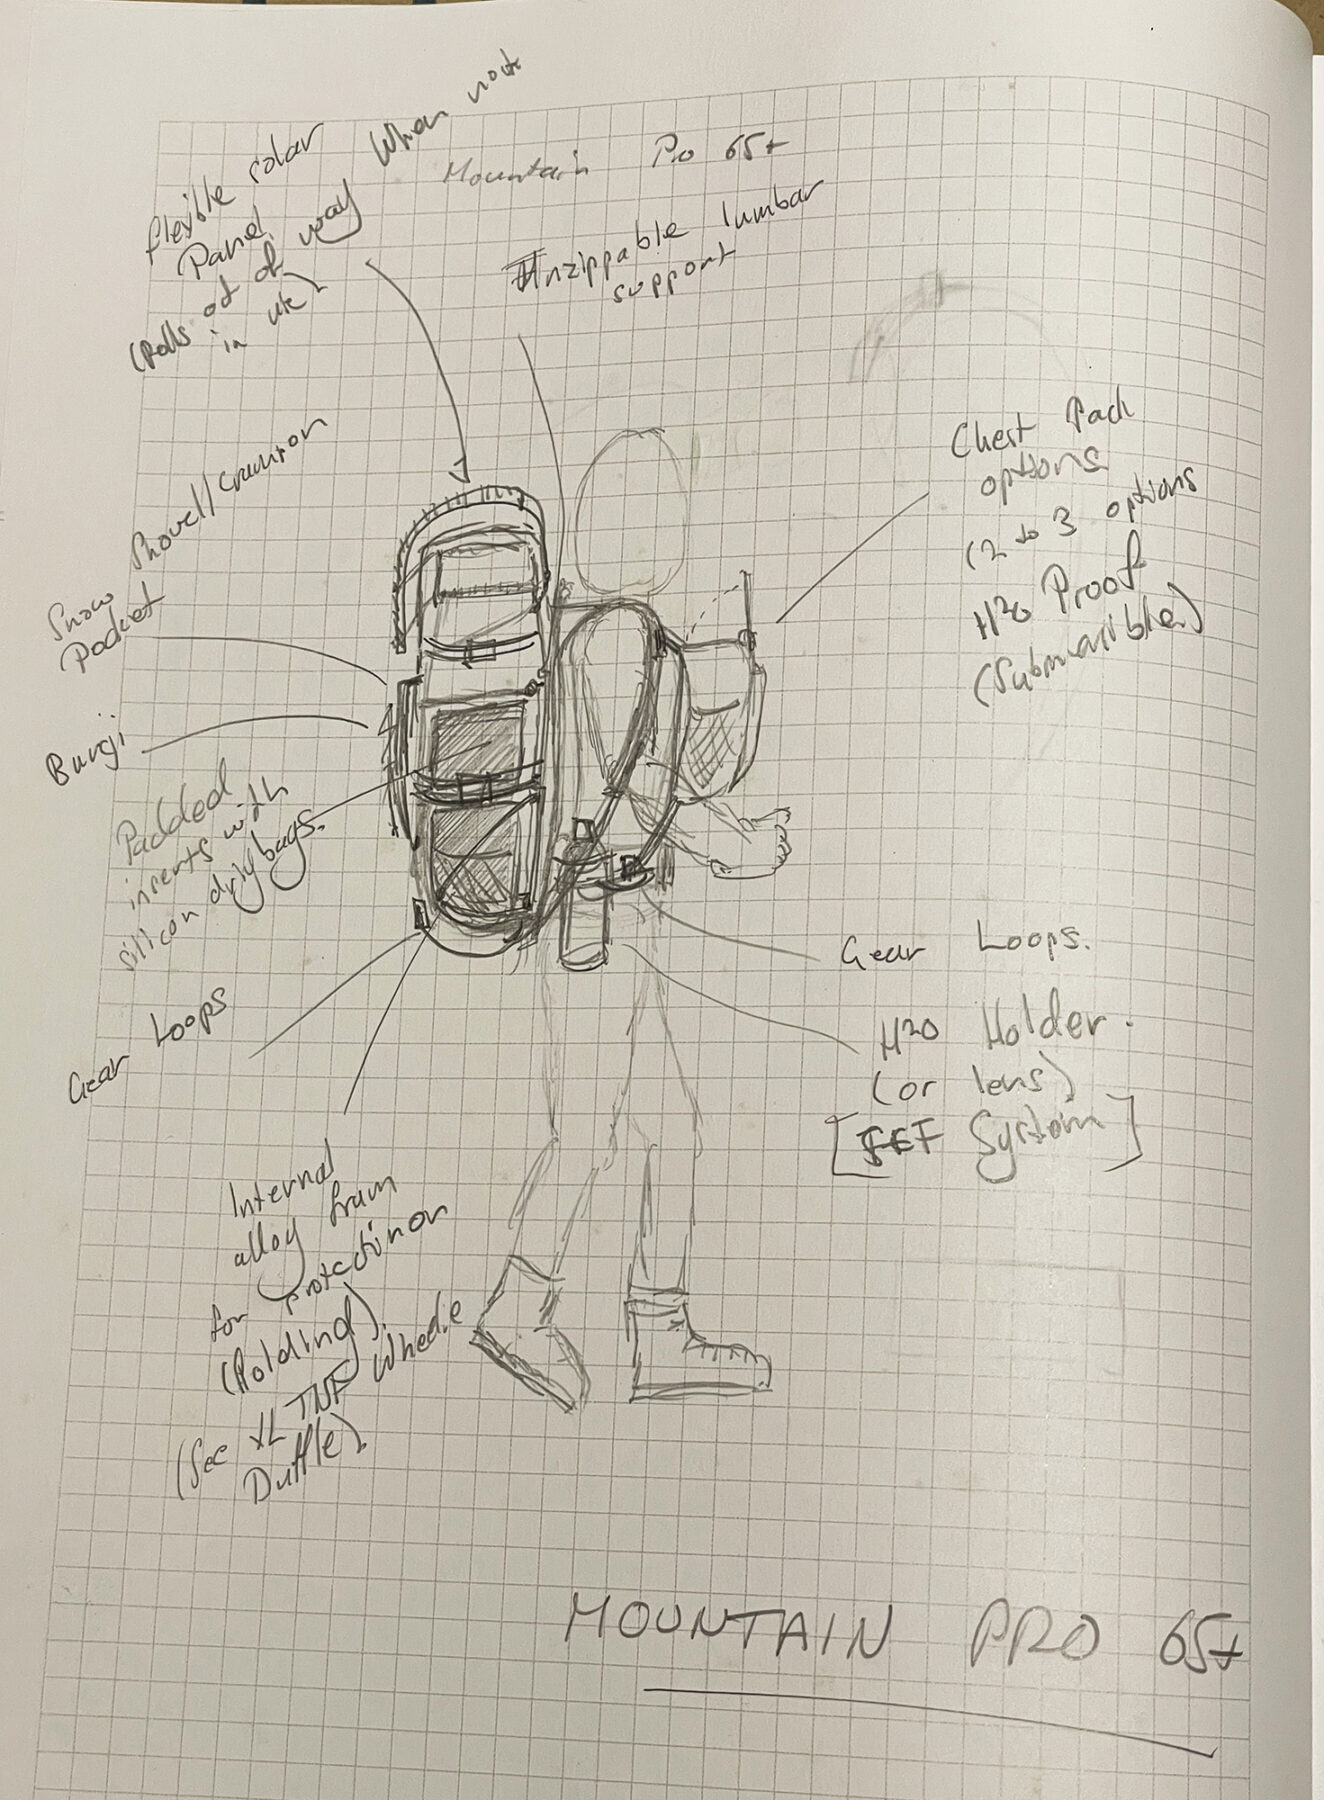 Mountain Pro 65+
flexible solar
Panel
(Rolls out of way When not
in use)
Unzippable lumbar
support
Chest Pack
options
(2 to 3 options
H2O Proof
(Submersible)
Shovel/Crampon
Snow
Pocket
Bungi
Padded
inserts with
silicon dry bags.
Gear Loops
Gear Loops.
H2O Holder.
(or lens)
System]
Internal
alloy fram
for protectinon
(See XL TNF Wheelie
Duffle).
MOUNTAIN PRO 65+